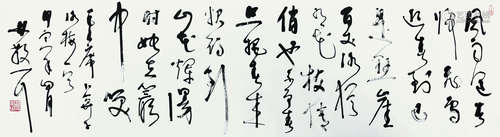 风雨送春
归飞雪
迎春到已
是悬崖
百丈冰犹
有花枝俏
俏也不争春
只把春来
报待到
山花烂漫
时她在丛
中笑
毛主席卜算子
咏梅一首